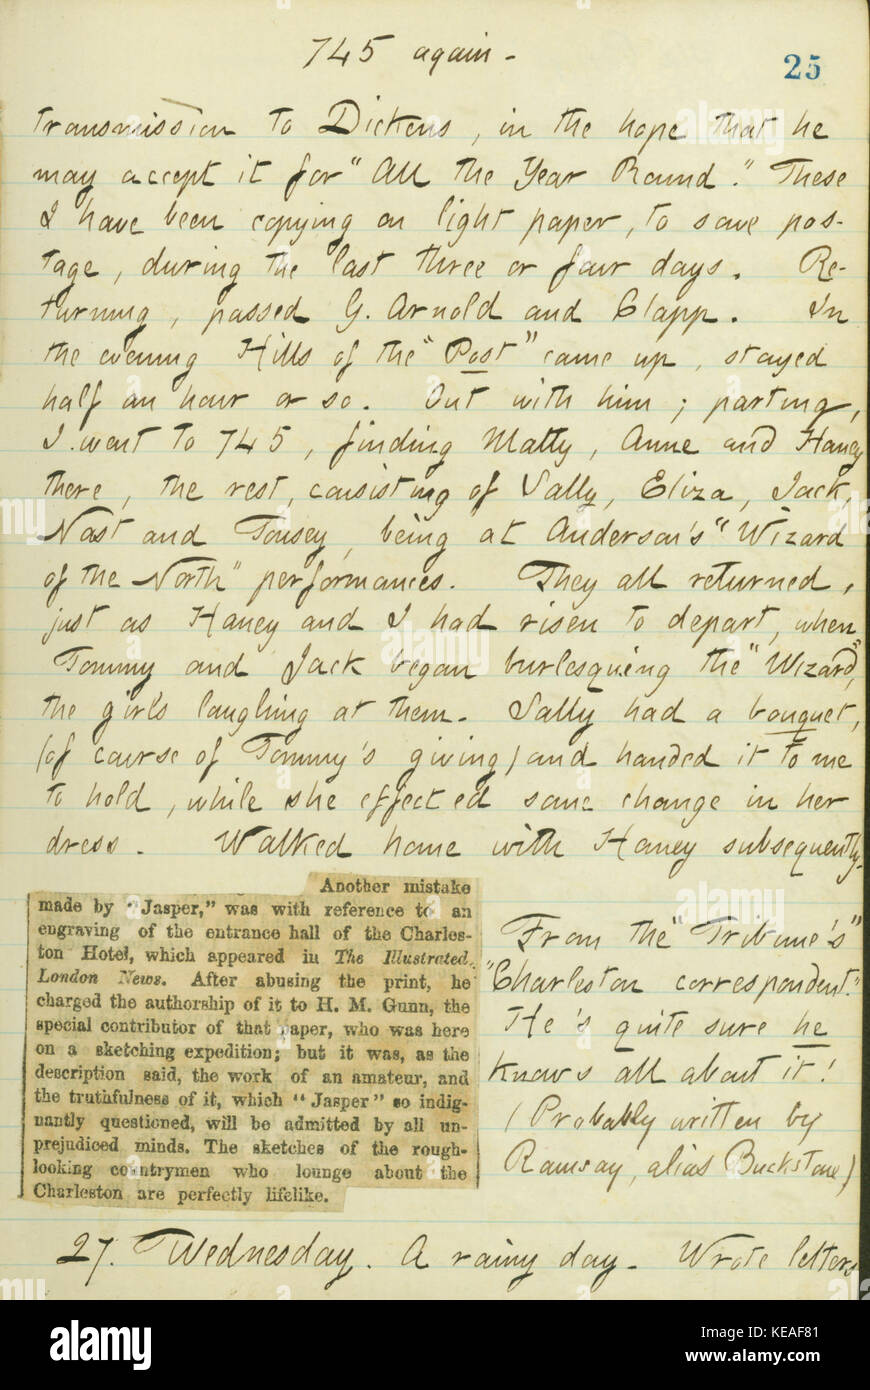 745 again -
25
transmission to Dickens, in the hope that he
may accept it for "All the Year Round." These
I have been copying on light paper, to save pos-
tage, during the last three or four days. Re-
turning, passed G. Arnold and Clapp. In
the evening Hills of the "Post" came up, stayed
half an hour or so. Out with him; parting,
I went to 745, finding Matty, Anne and Haney
there, the rest, consisting of Sally, Eliza, Jack,
Nast and Tousey, being at Anderson's "Wizard
of the North" performances. They all returned,
just as Haney and I had risen to depart, when
Tommy and Jack began burlesquing the "Wizard",
the girls laughing at them. Sally had a bouquet,
(of course of Tommy's giving) and handed it to me
to hold, while she effected some change in her
dress. Walked home with Haney subsequently.
Another mistake
made by "Jasper," was with reference to an
engraving of the entrance hall of the Charles-
ton Hotel, which appeared in The Illustrated
London News. After abusing the print, he
charged the authorship of it to H. M. Gunn, the
special contributor of that paper, who was here
on a sketching expedition; but it was, as the
description said, the work of an amateur, and
the truthfulness of it, which "Jasper" so indig-
nantly questioned, will be admitted by all un-
prejudiced minds. The sketches of the rough-
looking countrymen who lounge about the
Charleston are perfectly lifelike.
From the "Tribune's"
"Charleston correspondent."
He's quite sure he
knows all about it!
(Probably written by
Ramsay, alias Buckstone)
27. Wednesday. A rainy day - Wrote letters
alamy
Image ID: KEAF81
www.alamy.com